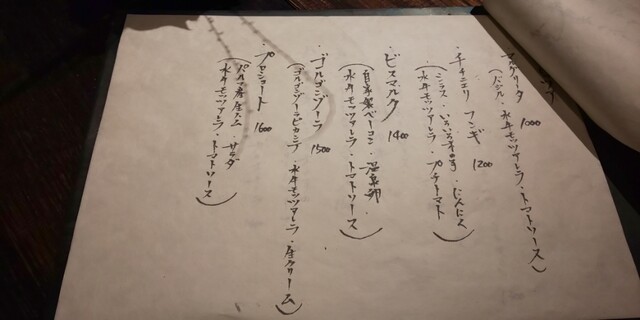 マルゲリータ 1000
(バジル・水牛モッツァレラ・トマトソース)
・チチニエリ フンギ 1200
(シラス・いろいろキノコ・にんにく
水牛モッツァレラ・プチトマト)
・ビスマルク 1400
(自家製ベーコン・温泉卵
水牛モッツァレラ・トマトソース)
・ゴルゴンゾーラ 1500
(ゴルゴンゾーラピカンテ・水牛モッツァレラ・生クリーム)
・プロシュート 1600
(パルマ産生ハム・サラダ
水牛モッツァレラ・トマトソース)